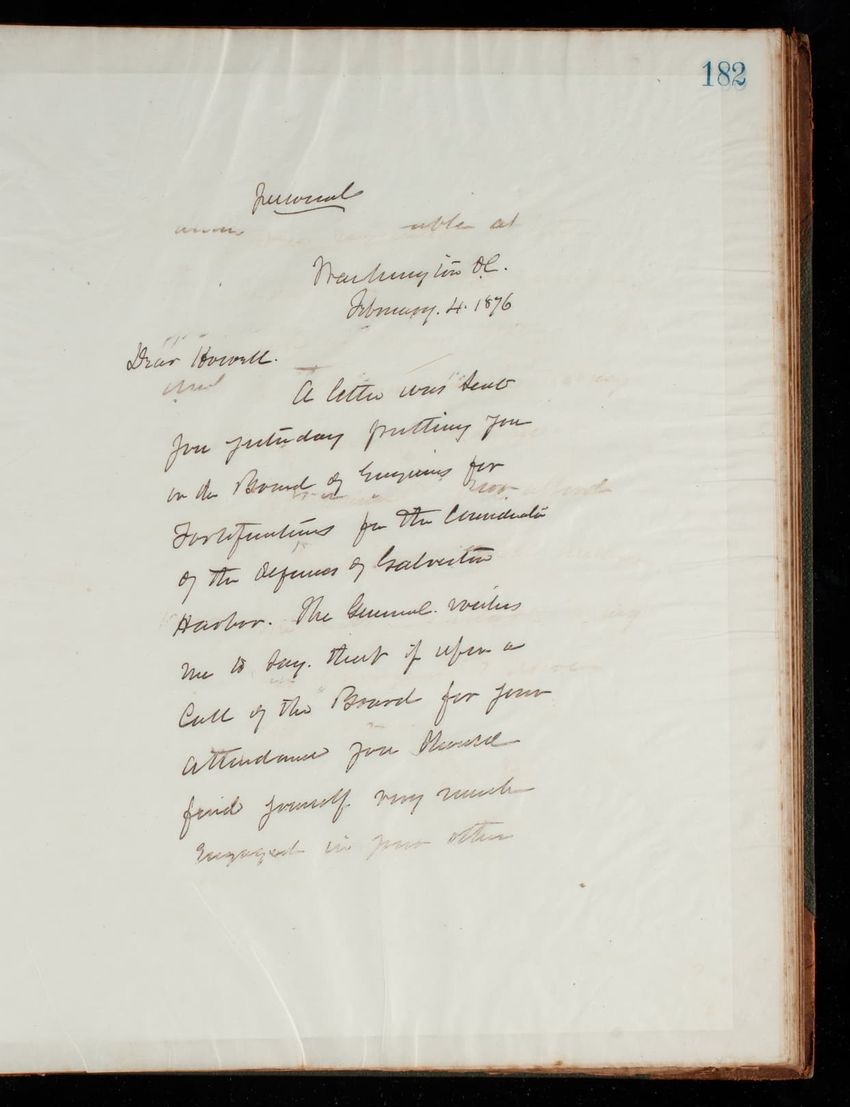 182
Personal
Washington D.C.
February. 4. 1876
Dear Howell.
A letter was sent
you yesterday putting you
on the Board of Engineers for
Fortifications for the Consideration
of the defenses of Galveston
Harbor. The General. wishes
me to say. that if upon a
Call of the Board for your
attendance you should
find yourself. very much
engaged in your other